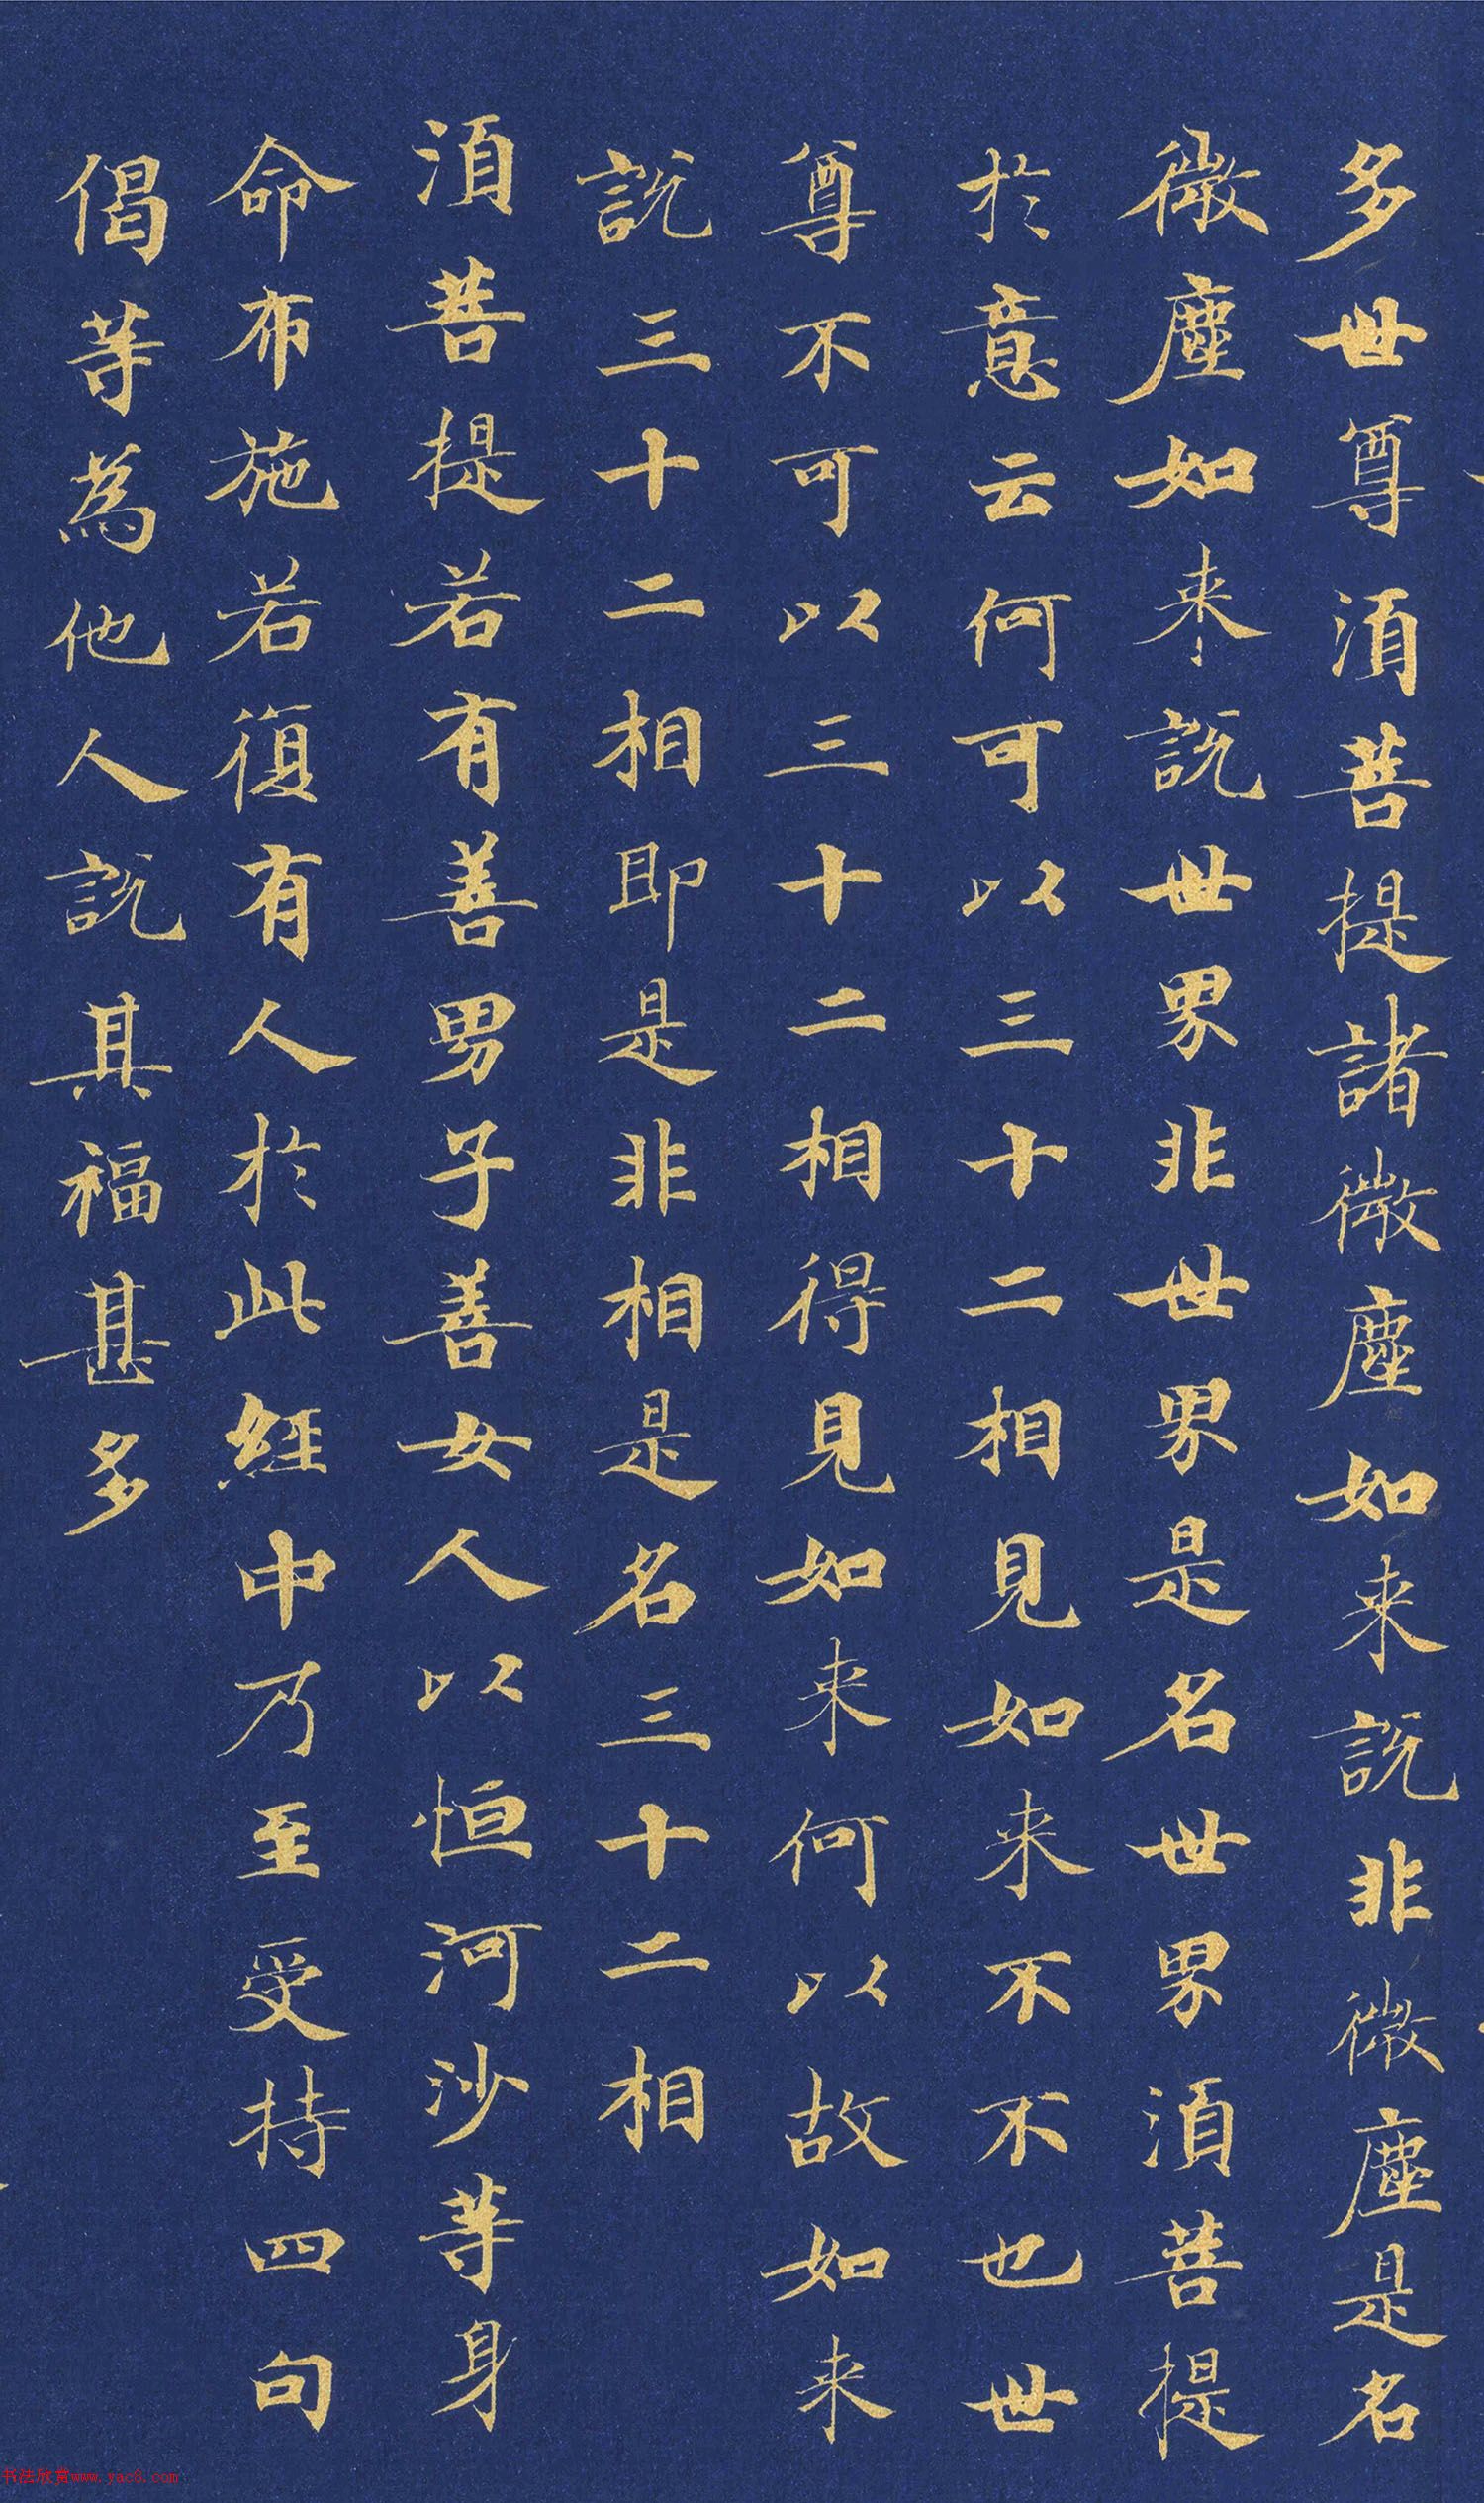 多世尊須菩提諸微塵如来說非微塵是名
微塵如来說世界非世界是名世界須菩提
於意云何可以三十二相見如来不不也世
尊不可以三十二相得見如来何以故如来
說三十二相即是非相是名三十二相
須菩提若有善男子善女人以恒河沙等身
命布施若復有人於此經中乃至受持四句
偈等為他人說其福甚多
书法欣赏www.yac8.com